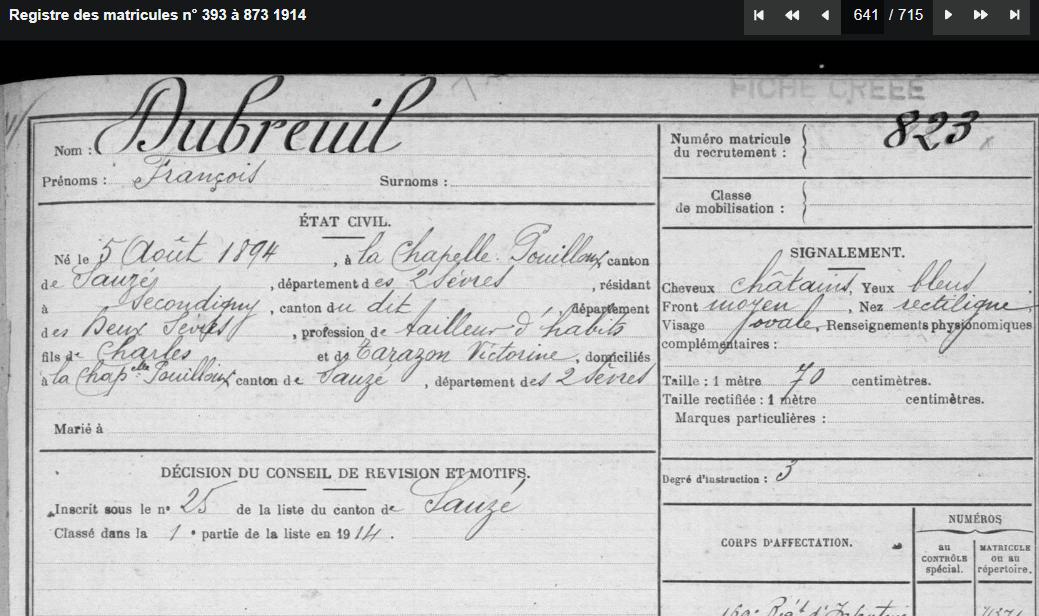 Registre des matricules n° 393 à 873 1914
641 / 715
FICHE CRÉÉE
Nom : Dubreuil
Prénoms : François Surnoms :
Numéro matricule du recrutement : 823
Classe de mobilisation :
ÉTAT CIVIL.
Né le 5 Août 1894, à la Chapelle-Pouilloux canton
de Sauzé, département des 2 Sèvres, résidant
à Secondigny, canton du dit département
des Deux Sèvres, profession de tailleur d'habits
fils de Charles et de Tarazon Victorine, domiciliés
à la Chap^elle Pouilloux canton de Sauzé, département des 2 Sèvres
Marié à
SIGNALEMENT.
Cheveux châtains, Yeux bleus
Front moyen, Nez rectiligne
Visage ovale, Renseignements physionomiques
complémentaires :
Taille : 1 mètre 70 centimètres.
Taille rectifiée : 1 mètre centimètres.
Marques particulières :
DÉCISION DU CONSEIL DE REVISION ET MOTIFS.
Inscrit sous le n° 25 de la liste du canton de Sauzé
Classé dans la 1e partie de la liste en 1914.
Degré d'instruction : 3
CORPS D'AFFECTATION.
NUMÉROS
au CONTRÔLE spécial.
MATRICULE ou au répertoire.
Rég^t d'Infanterie